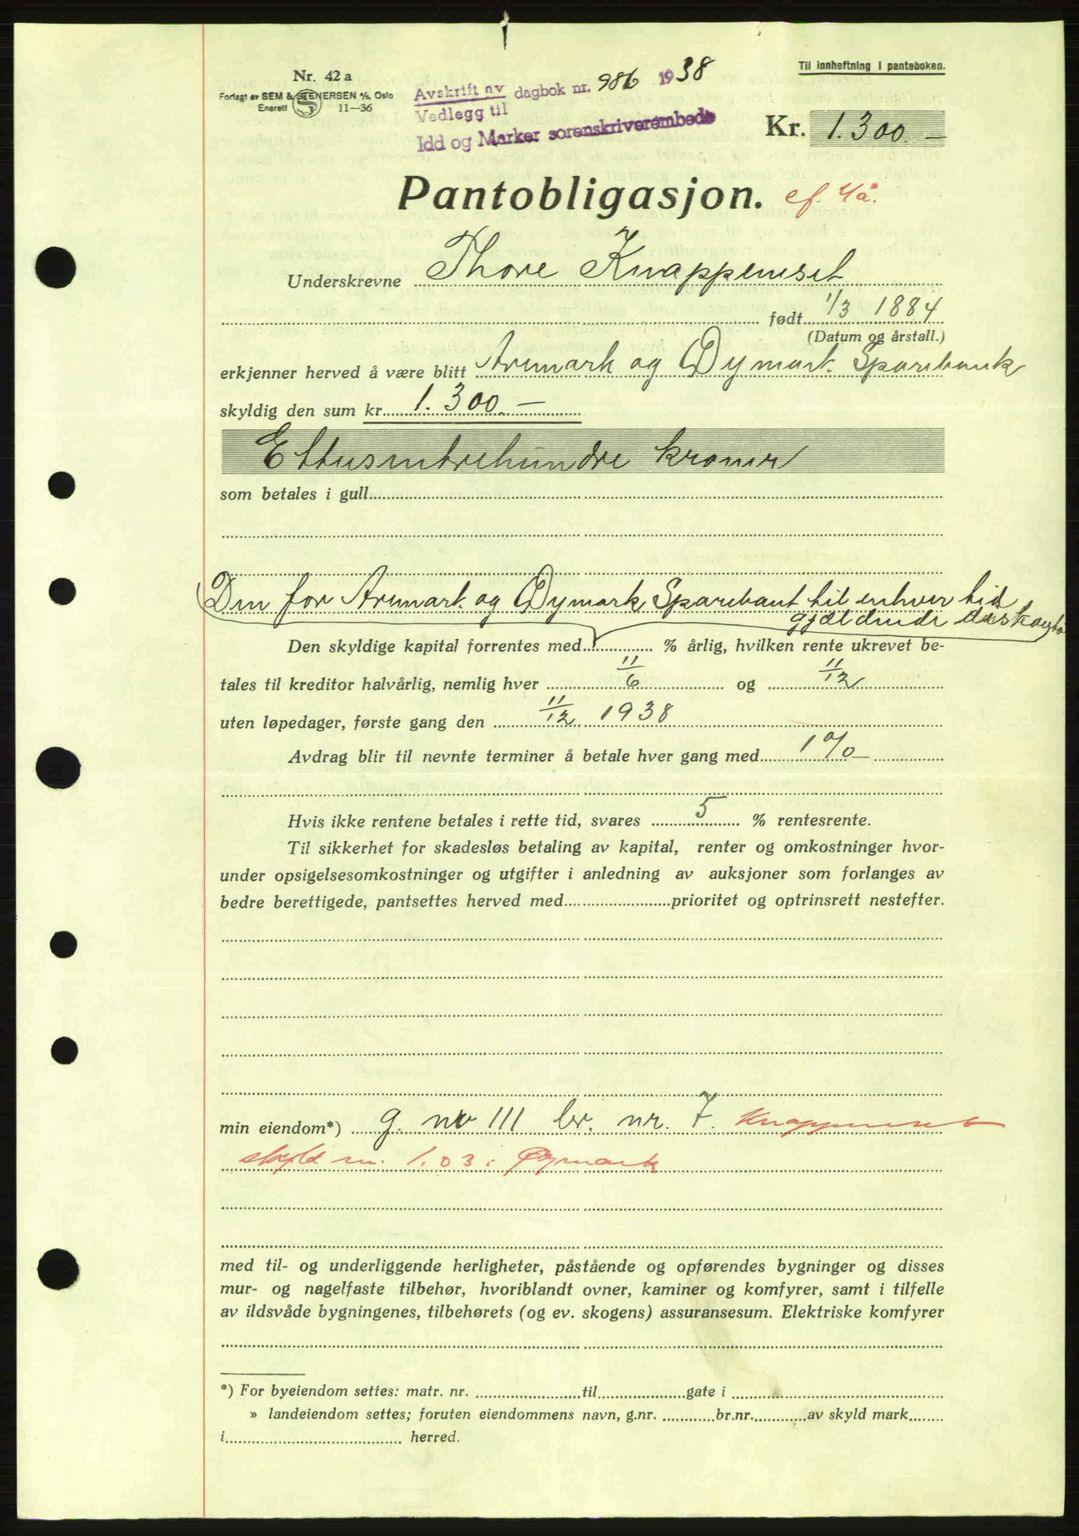 Nr. 42 a
Forlagt av SEM & STENERSEN A/S, Oslo
Enerett 11—36
Avskrift av dagbok nr. 986 1938
Vedlegg til
Idd og Marker sorenskriverembede
Til innheftning i panteboken.
Kr. 1.300.—
Pantobligasjon. cf. 4å.
Underskrevne Thore Knappemset
født 1/3 1884
(Datum og årstall.)
erkjenner herved å være blitt Aremark og Øymark Sparebank
skyldig den sum kr. 1.300.—
Ettusentrehundre kroner
som betales i gull
Den for Aremark og Øymark Sparebank til enhver tid
gjældende
Den skyldige kapital forrentes med % årlig, hvilken rente ukrevet be-
tales til kreditor halvårlig, nemlig hver 11/6 og 11/12
uten løpedager, første gang den 11/12 1938
Avdrag blir til nevnte terminer å betale hver gang med 1 %—
Hvis ikke rentene betales i rette tid, svares 5 % rentesrente.
Til sikkerhet for skadesløs betaling av kapital, renter og omkostninger hvor-
under opsigelsesomkostninger og utgifter i anledning av auksjoner som forlanges av
bedre berettigede, pantsettes herved med prioritet og optrinsrett nestefter.
min eiendom*) g. nr 111 br. nr. 7. Knappemset
skyld m. 1.03 i Øymark
med til- og underliggende herligheter, påstående og opførendes bygninger og disses
mur- og nagelfaste tilbehør, hvoriblandt ovner, kaminer og komfyrer, samt i tilfelle
av ildsvåde bygningenes, tilbehørets (og ev. skogens) assuransesum. Elektriske komfyrer
*) For byeiendom settes: matr. nr. til gate i
» landeiendom settes; foruten eiendommens navn, g.nr. br.nr. av skyld mark
i herred.